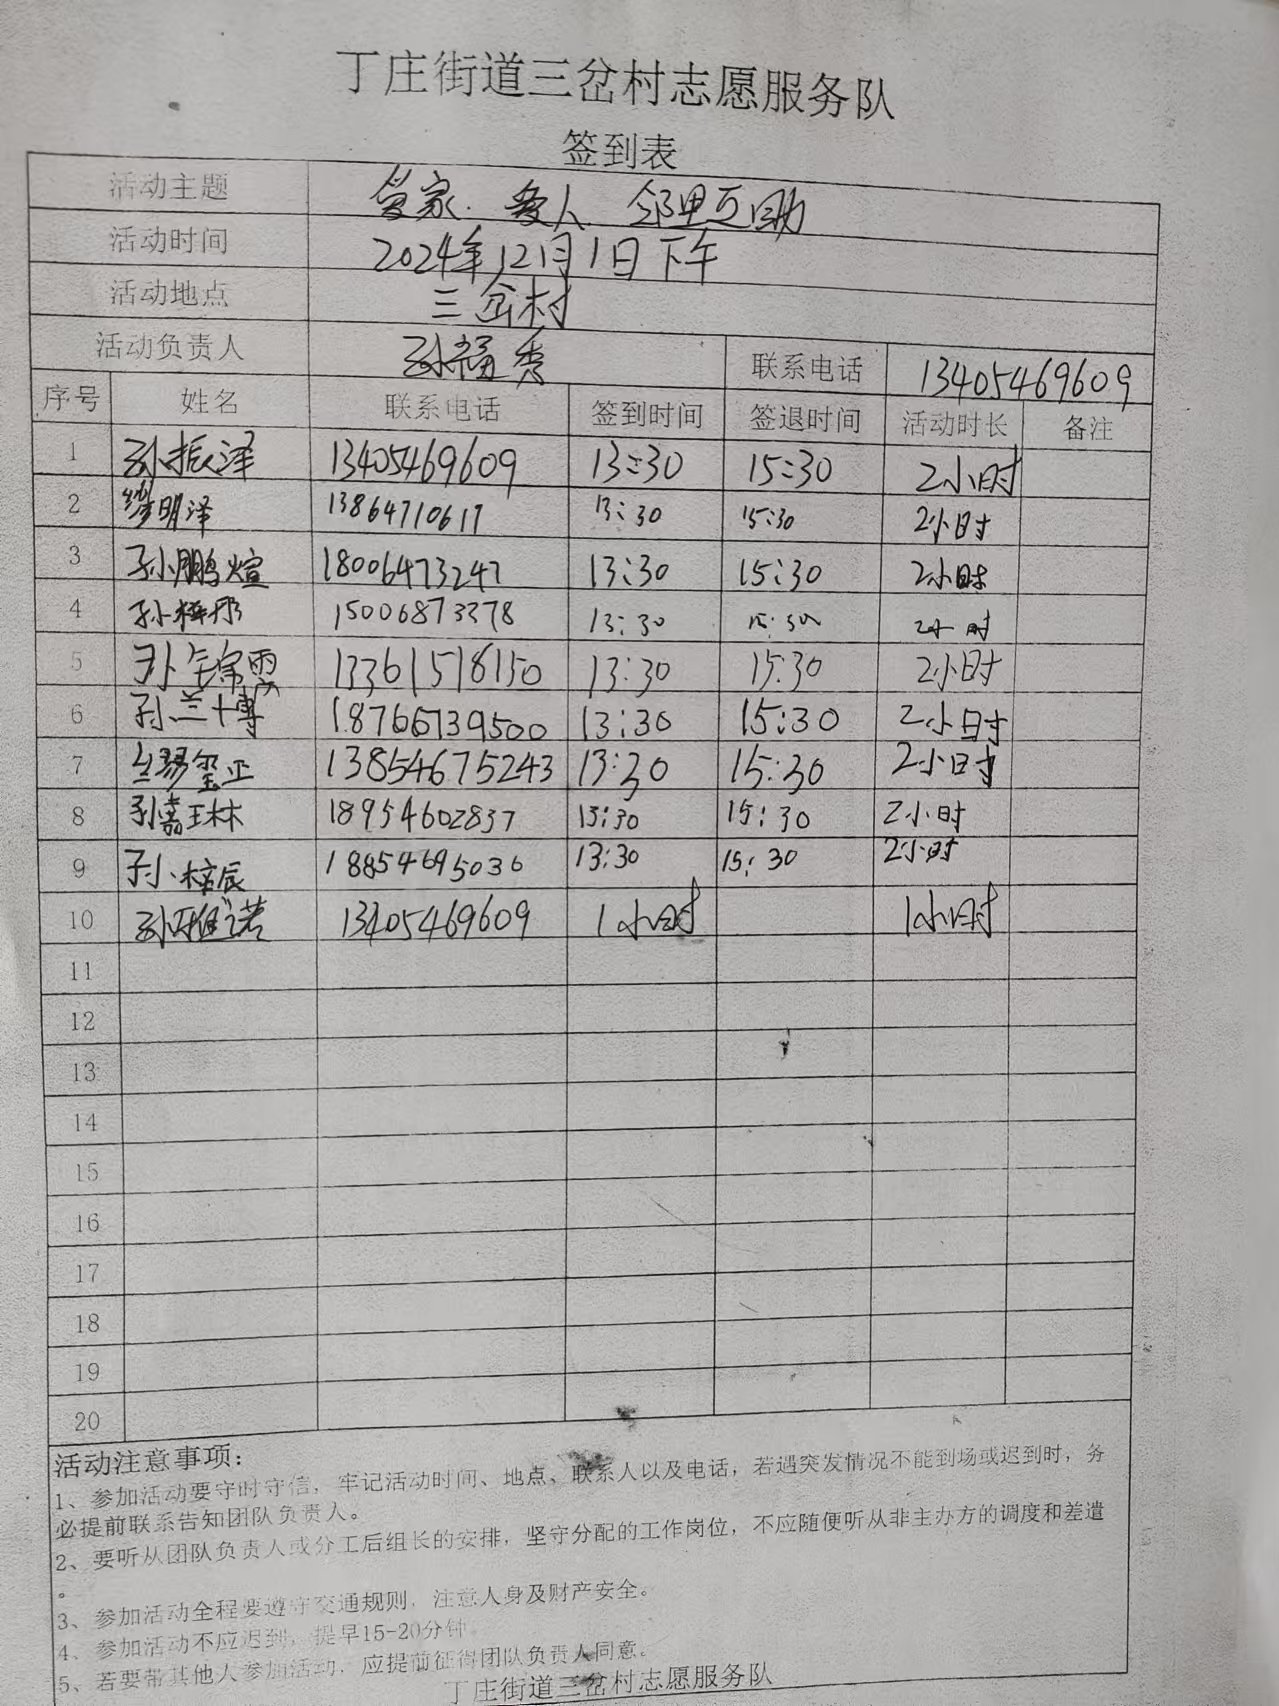 丁庄街道三岔村志愿服务队
签到表
活动主题 爱家、爱人、邻里互助
活动时间 2024年12月1日下午
活动地点 三岔村
活动负责人 孙福秀 联系电话 13405469609
序号 姓名 联系电话 签到时间 签退时间 活动时长 备注
1 孙振泽 13405469609 13:30 15:30 2小时
2 明泽 13864710617 13:30 15:30 2小时
3 孙鹏煊 18006473247 13:30 15:30 2小时
4 孙梓彤 15006873378 13:30 15:30 2小时
5 孙锦雯 13361518150 13:30 15:30 2小时
6 孙兰博 18766739500 13:30 15:30 2小时
7 13854675243 13:30 15:30 2小时
8 孙嘉琳 18954602837 13:30 15:30 2小时
9 孙梓辰 18854695036 13:30 15:30 2小时
10 孙雅诺 13405469609 1小时 1小时
11
12
13
14
15
16
17
18
19
20
活动注意事项：
1、参加活动要守时守信，牢记活动时间、地点、联系人以及电话，若遇突发情况不能到场或迟到时，务
必提前联系告知团队负责人。
2、要听从团队负责人或分工后组长的安排，坚守分配的工作岗位，不应随便听从非主办方的调度和差遣
。
3、参加活动全程要遵守交通规则，注意人身及财产安全。
4、参加活动不应迟到，提早15-20分钟。
5、若要带其他人参加活动，应提前征得团队负责人同意。
丁庄街道三岔村志愿服务队